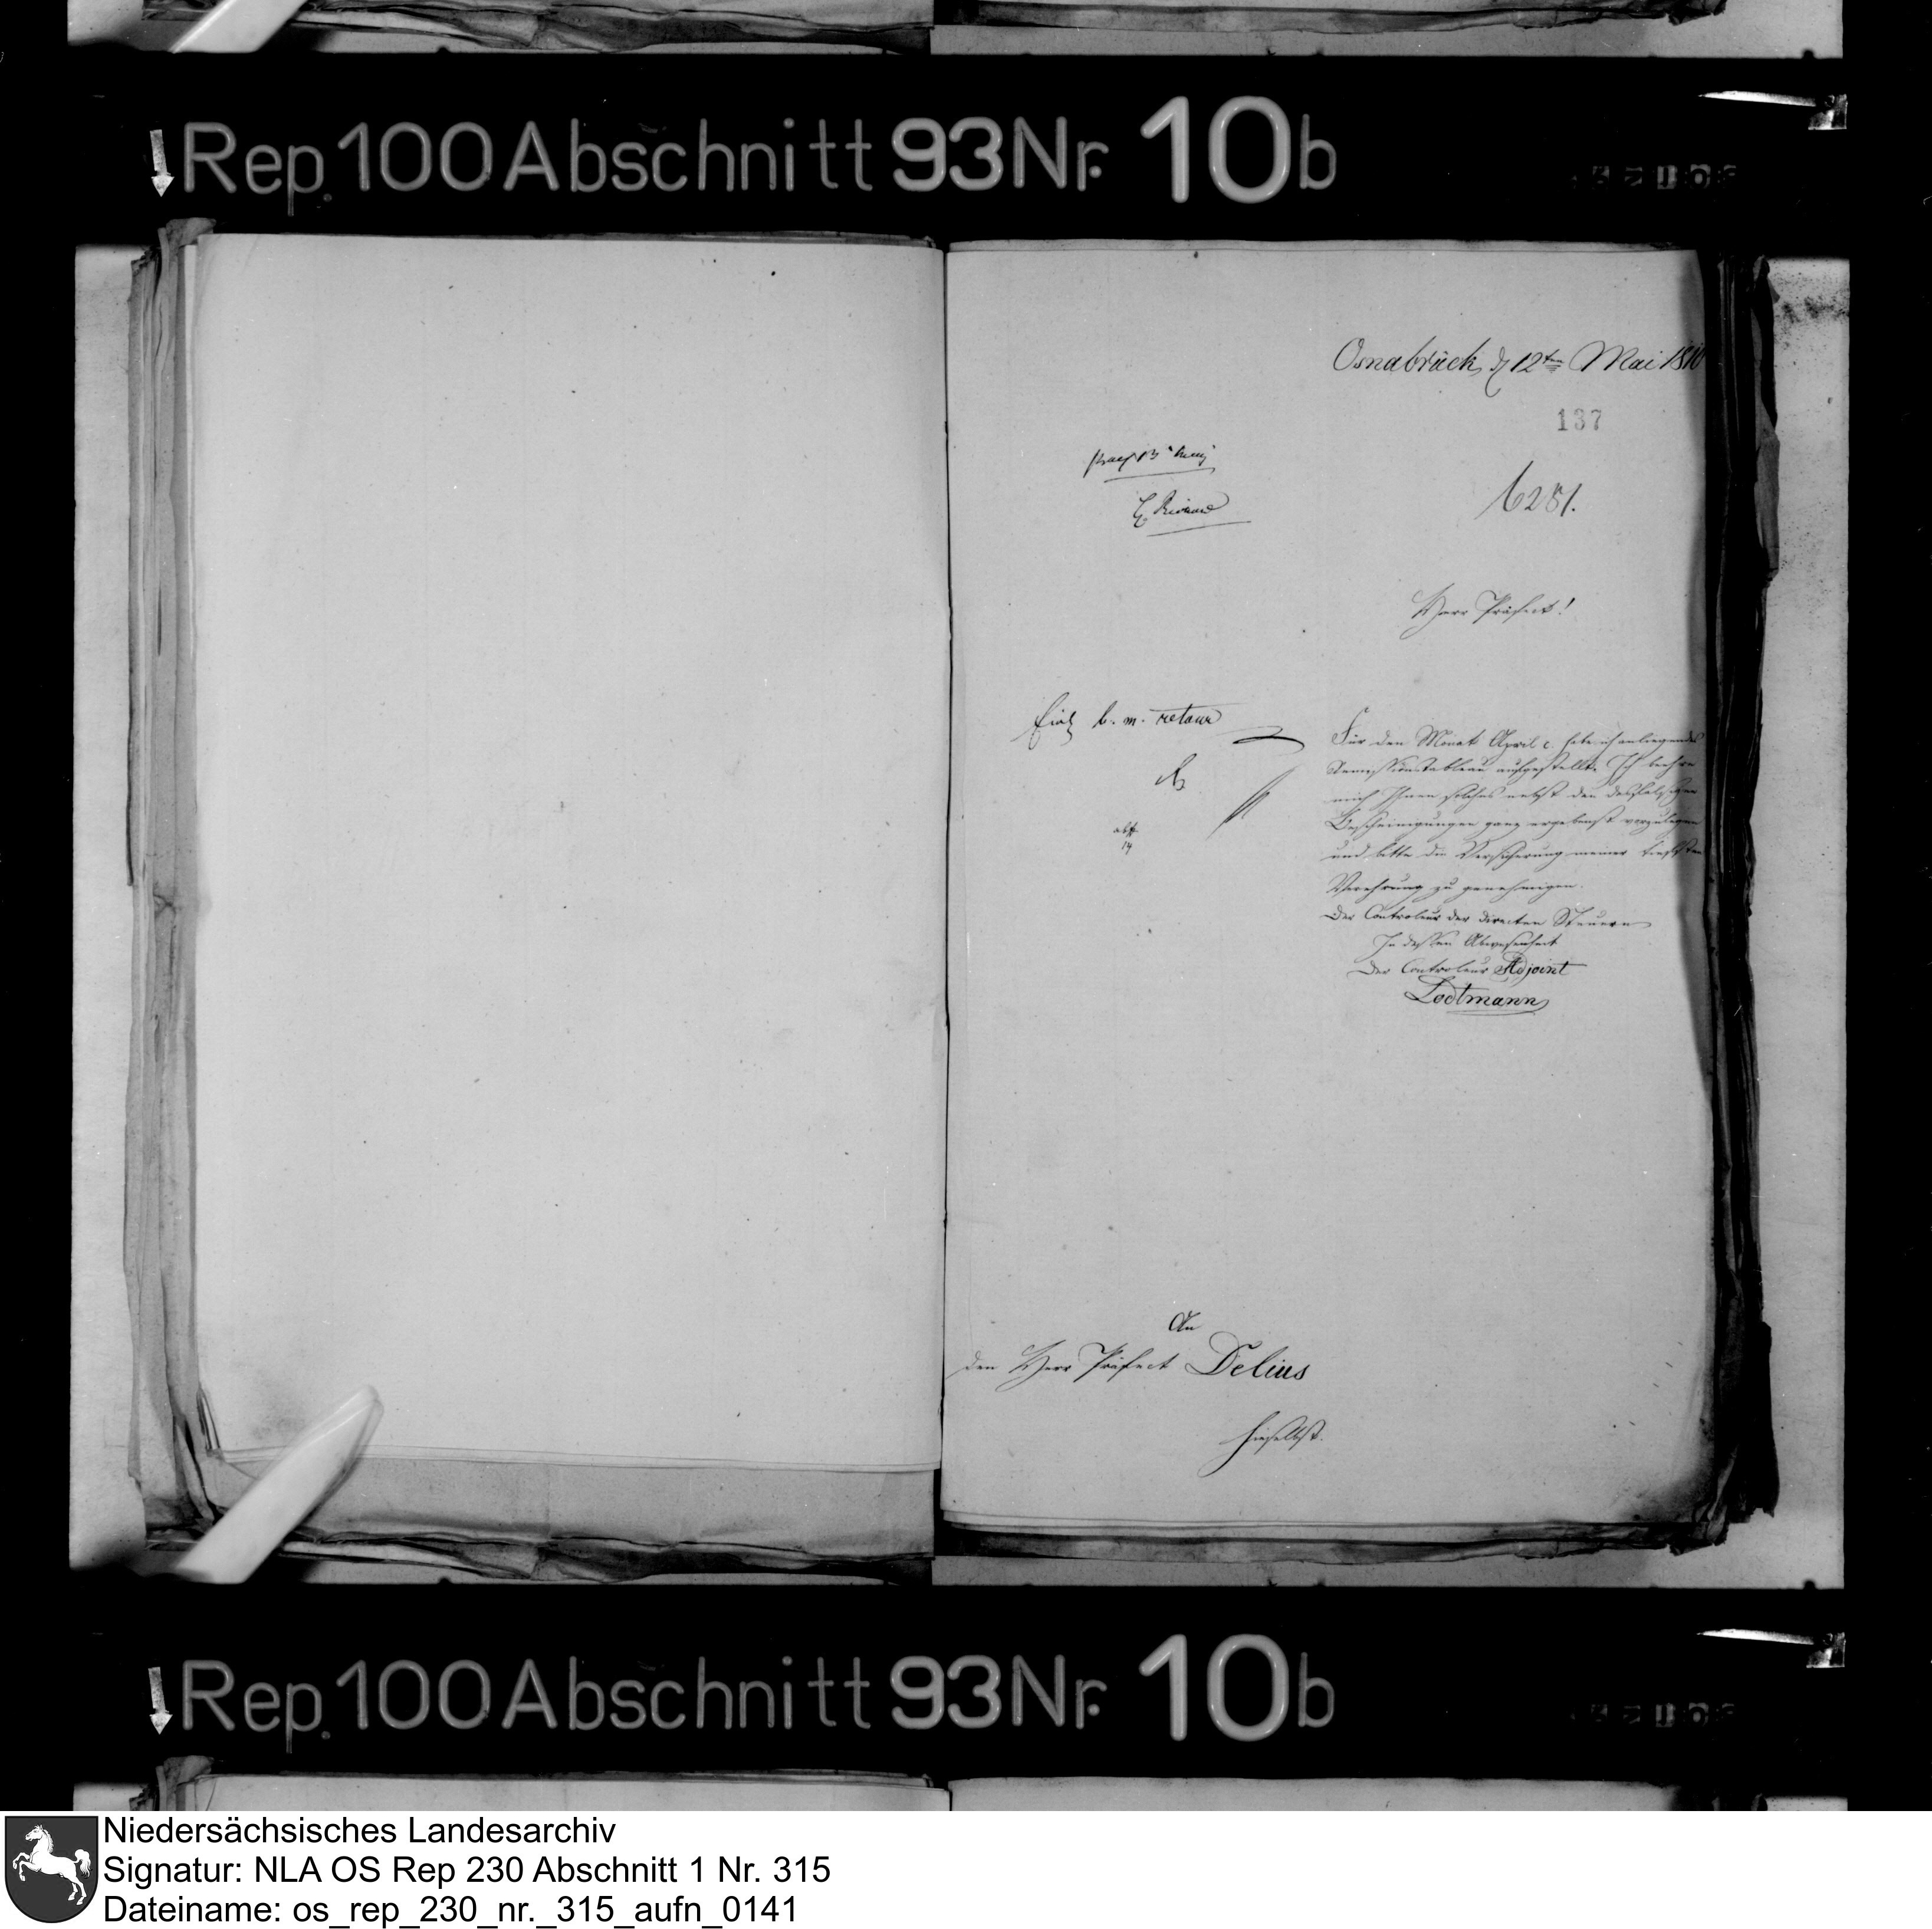 Rep. 100 Abschnitt 93 Nr. 10b
Osnabrück, d 12ten Mai 1810
137
6281.
Herr Präfect!
b. m. retour
Für den Monat April c. habe ich anliegendes
aufgestellt. Ich beehre
mich Ihnen solches nebst den desfalsigen
Bescheinigungen ganz ergebenst vorzulegen
und bitte die Versicherung meiner tiefsten
Verehrung zu genehmigen.
Der Controleur der directen Steuern
In dessen Abwesenheit
Der Controleur Adjoint
Lodtmann
An
den Herr Präfect Delius
hieselbst.
Rep. 100 Abschnitt 93 Nr. 10b
Niedersächsisches Landesarchiv
Signatur: NLA OS Rep 230 Abschnitt 1 Nr. 315
Dateiname: os_rep_230_nr._315_aufn_0141